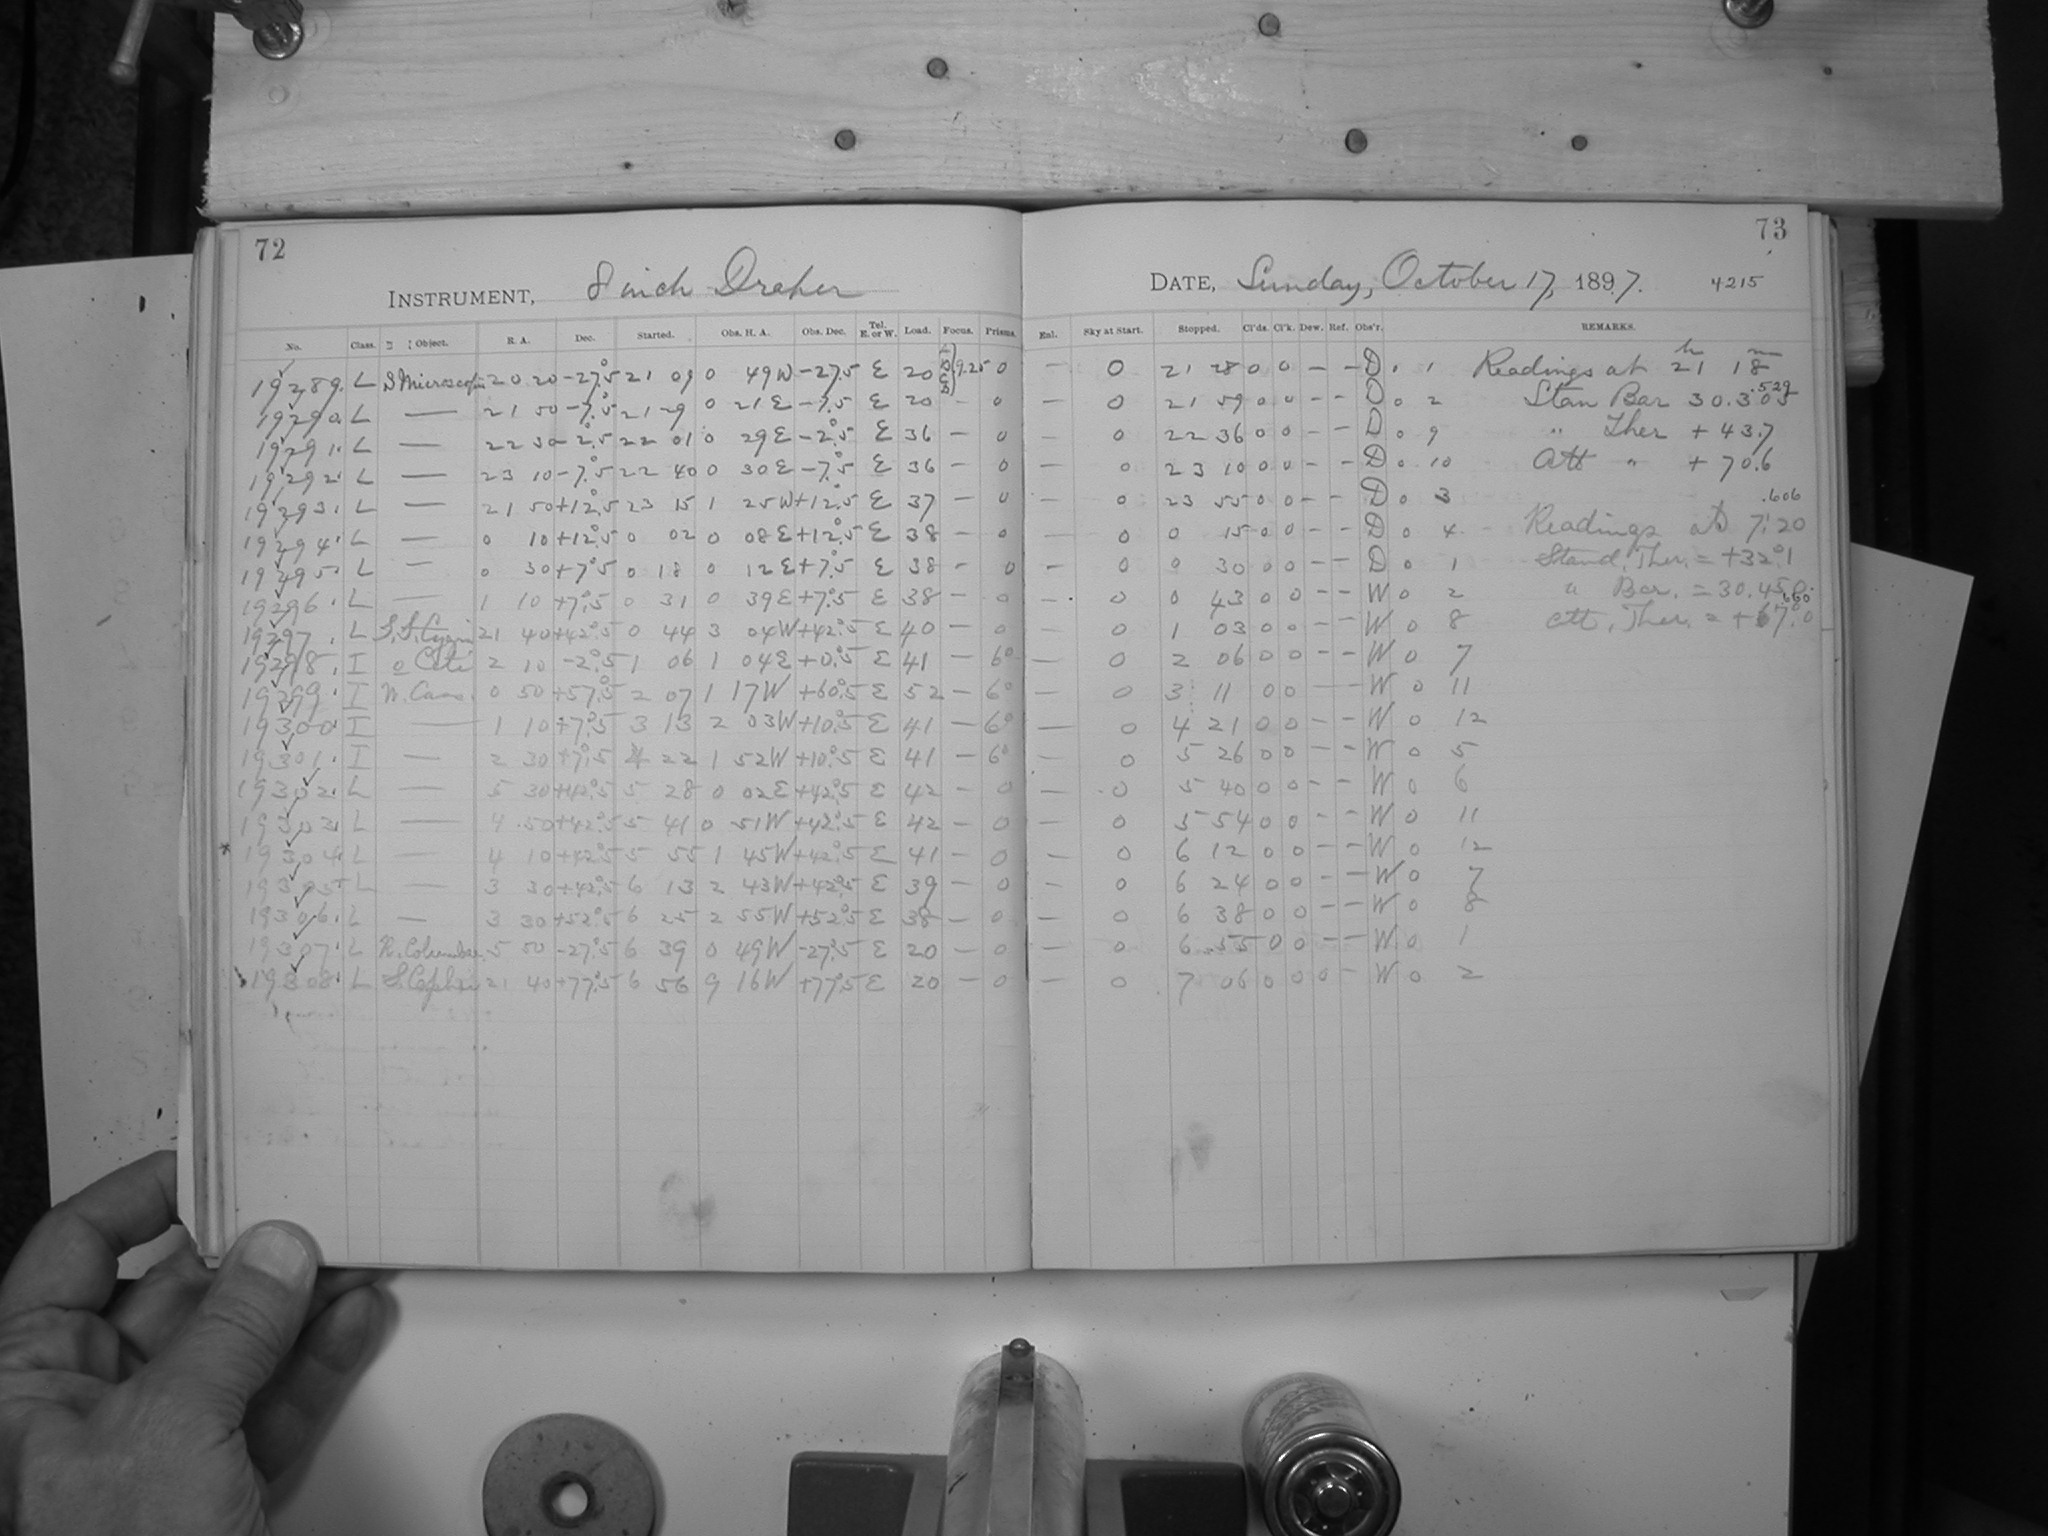 72
INSTRUMENT, 8 inch Draper
No. Class. Object. R. A. Dec. Started. Obs. H. A. Obs. Dec. Tel. E. or W. Load. Focus. Prisms.
19289. L 20 20 -27°.5 21 09 0 49W -27.5 E 20 9.25 0
19290. L — 21 50 -7°.5 21 29 0 21E -7.5 E 20 - 0
19291. L — 22 30 -2°.5 22 01 0 29E -2°.5 E 36 - 0
19292. L — 23 10 -7°.5 22 40 0 30E -7°.5 E 36 - 0
19293. L — 21 50 +12°.5 23 15 1 25W +12°.5 E 37 - 0
19294. L — 0 10 +12°.5 0 02 0 08E +12°.5 E 38 - 0
19295. L — 0 30 +7°.5 0 18 0 12E +7°.5 E 38 - 0
19296. L — 1 10 +7°.5 0 31 0 39E +7°.5 E 38 - 0
19297. L 21 40 +42°.5 0 44 3 04W +42°.5 E 40 - 0
19298. I o Ceti 2 10 -2°.5 1 06 1 04E +0°.5 E 41 - 6°
19299. I N. Cass. 0 50 +57°.5 2 07 1 17W +60°.5 E 52 - 6°
19300. I — 1 10 +7°.5 3 13 2 03W +10°.5 E 41 - 6°
19301. I — 2 30 +7°.5 4 22 1 52W +10°.5 E 41 - 6°
19302. L — 5 30 +42°.5 5 28 0 02E +42°.5 E 42 - 0
19303. L — 4 50 +42°.5 5 41 0 51W +42°.5 E 42 - 0
* 19304. L — 4 10 +42°.5 5 55 1 45W +42°.5 E 41 - 0
19305. L — 3 30 +42°.5 6 13 2 43W +42°.5 E 39 - 0
19306. L — 3 30 +52°.5 6 25 2 55W +52°.5 E 38 - 0
19307. L N. Columbae 5 50 -27°.5 6 39 0 49W -27°.5 E 20 - 0
19308. L S. Cephei 21 40 +77°.5 6 56 9 16W +77°.5 E 20 - 0
73
DATE, Sunday, October 17, 1897. 4215
Enl. Sky at Start. Stopped. Cl'ds. Cl'k. Dew. Ref. Obs'r. REMARKS.
— 0 21 28 0 0 - - D. 1 Readings at 21h 18m
— 0 21 59 0 0 - - D 0 2 Stan Bar 30.303 .529
— 0 22 36 0 0 - - D 0 9 " Ther + 43.7
— 0 23 10 0 0 - - D 0 10 Att " + 70.6
— 0 23 55 0 0 - - D 0 3 .606
— 0 0 15 0 0 - - D 0 4 Readings at 7:20
— 0 0 30 0 0 - - D 0 1 Stand. Ther. = +32°.1
— 0 0 43 0 0 - - W 0 2 " Bar. = 30.450 .660
— 0 1 03 0 0 - - W 0 8 Att. Ther. = +67°.0
— 0 2 06 0 0 - - W 0 7
— 0 3 11 0 0 - - W 0 11
— 0 4 21 0 0 - - W 0 12
— 0 5 26 0 0 - - W 0 5
— 0 5 40 0 0 - - W 0 6
— 0 5 54 0 0 - - W 0 11
— 0 6 12 0 0 - - W 0 12
— 0 6 24 0 0 - - W 0 7
— 0 6 38 0 0 - - W 0 8
— 0 6 55 0 0 - - W 0 1
— 0 7 06 0 0 0 - W 0 2